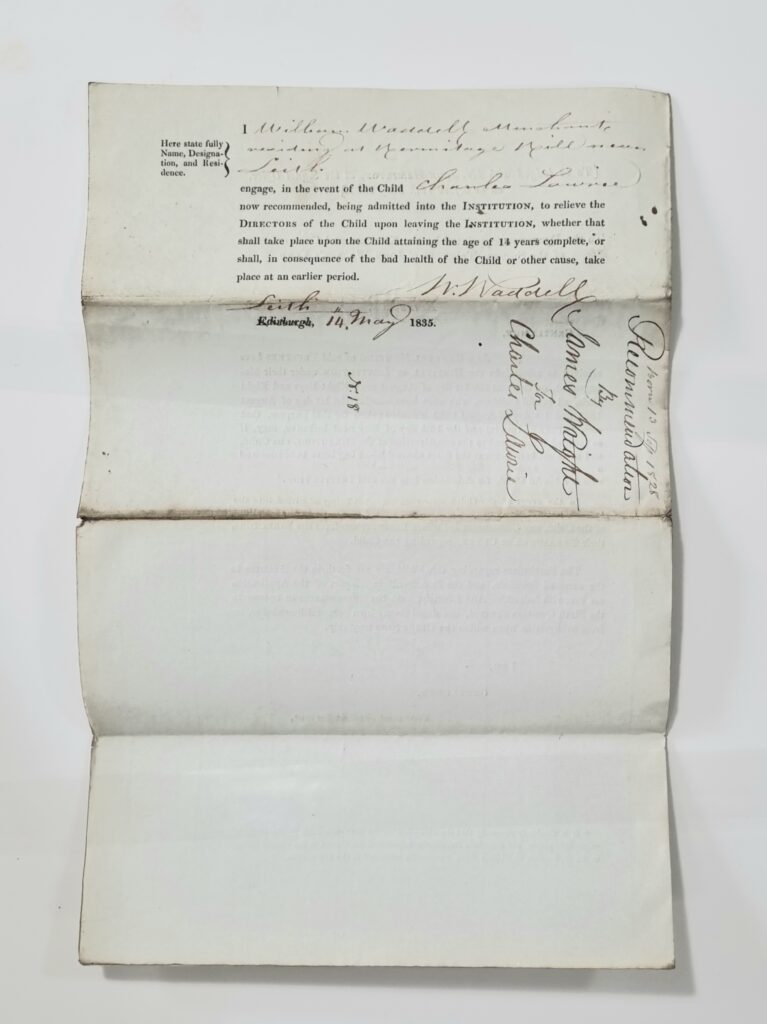 Here state fully
Name, Designa-
tion, and Resi-
dence.
I William Waddell Merchant,
residing at Hermitage Hill near
Leith
engage, in the event of the Child Charles Lowrie
now recommended, being admitted into the INSTITUTION, to relieve the
DIRECTORS of the Child upon leaving the INSTITUTION, whether that
shall take place upon the Child attaining the age of 14 years complete, or
shall, in consequence of the bad health of the Child or other cause, take
place at an earlier period.
W. Waddell
Leith
Edinburgh, 14 May 1835.
Born 13 Sep 1828
Recommendation
By
James Wright
for
Charles Lowrie
N. 18